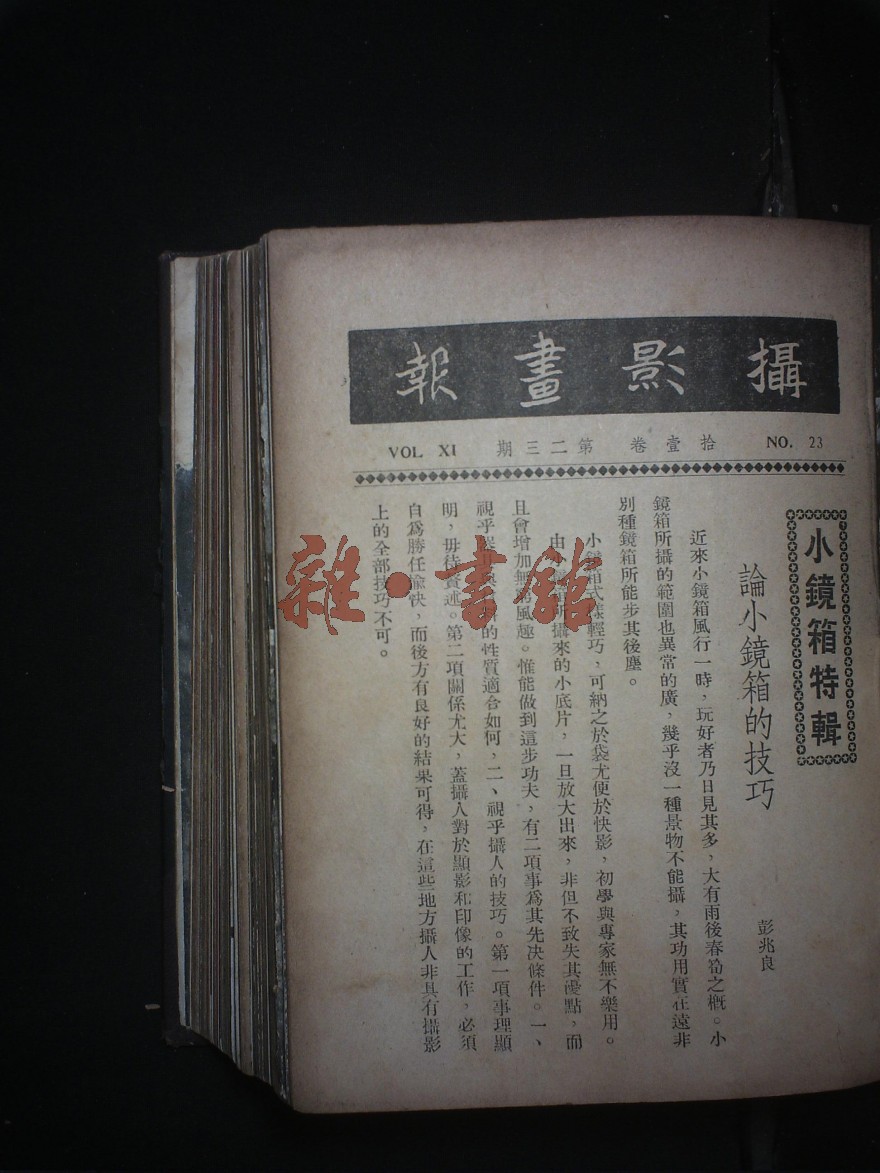 攝影畫報
VOL XI 期三二第 卷壹拾 NO. 23
小鏡箱特輯
論小鏡箱的技巧
彭兆良
近來小鏡箱風行一時，玩好者乃日見其多，大有雨後春筍之概。小
鏡箱所攝的範圍也異常的廣，幾乎沒一種景物不能攝，其功用實在遠非
別種鏡箱所能步其後塵。
小鏡箱式樣輕巧，可納之於袋尤便於快影，初學與專家無不樂用。
由小鏡箱所攝來的小底片，一旦放大出來，非但不致失其優點，而
且會增加無窮風趣。惟能做到這步功夫，有二項事爲其先決條件。一、
視乎器用與材料的性質適合如何，二、視乎攝人的技巧。第一項事理顯
明，毋待贅述。第二項關係尤大，蓋攝人對於顯影和印像的工作，必須
自爲勝任愉快，而後方有良好的結果可得，在這些地方攝人非具有攝影
上的全部技巧不可。
雜·書館